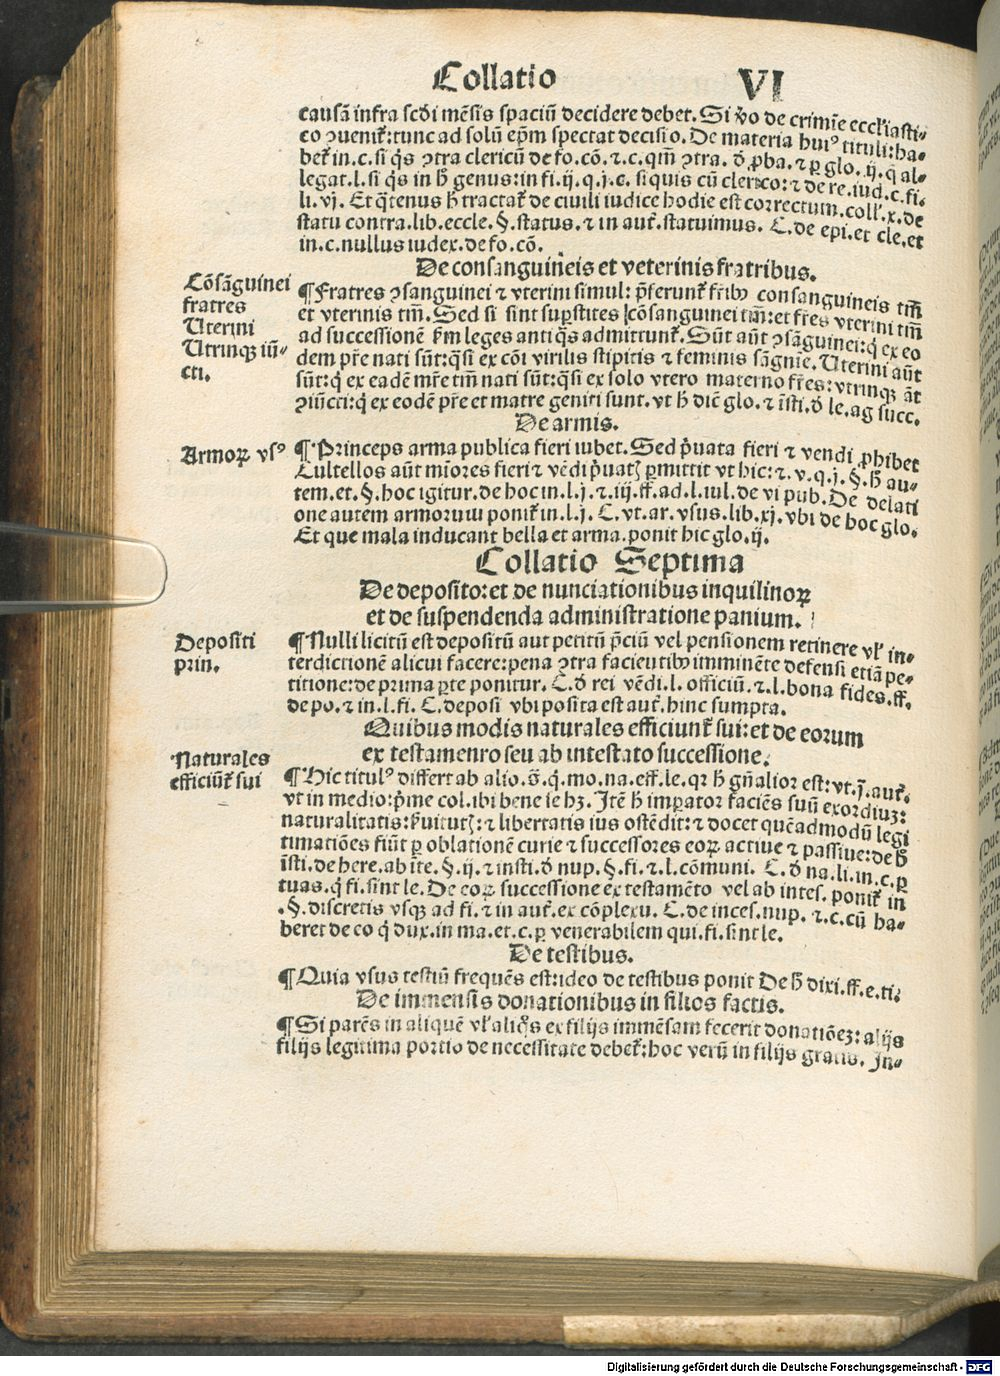 Collatio VI
causã infra scđi mẽsis spaciũ decidere debet. Si ṽo de crimĩe eccľiasti⸗
co ꝯuenit᷑: tunc ad solũ ep̃m spectat decisio. De materia huiꝰ tituli: ha⸗
bet᷑ in. c. si q̃s ꝯtra clericũ de fo. cõ. ⁊ c. qm̃ ꝯtra. đ ꝓba. ⁊ ꝑ glo. ij. q̃ al⸗
legat. l. si q̃s in ħ genus: in fi. ij. q. j. c. si quis cũ clerico: ⁊ de re. iud. c. fi.
li. vj. Et q̃tenus ħ tractat᷑ de ciuili iudice hodie est correctum. coll᷑. x. de
statu contra. lib. eccle. §. status. ⁊ in aut᷑. statuimus. C. de epi. et cle. et
in. c. nullus iudex. de fo. cõ.
De consanguineis et veterinis fratribus.
Cõsãguinei
fratres
Uterini
Utrinqꝫ iũ⸗
cti.
¶ Fratres ꝯsanguinei ⁊ vterini simul: p̃ferunt᷑ fr̃ibꝰ consanguineis tm̃
et vterinis tm̃. Sed si sint suꝑstites cõsanguinei tm̃: et fr̃es vterini tm̃
ad successionẽ ẜm leges antiq̃s admittunt᷑. Sũt aũt ꝯsãguinei: q̇ ex eo
dem pr̃e nati sũt: q̃si ex cõi virilis stipitis ⁊ feminis sãgnie. Uterini aũt
sũt: q̇ ex eadẽ mr̃e tm̃ nati sũt: q̃si ex solo vtero materno fr̃es: vtrinqꝫ aũt
ꝯiũcti: q̇ ex eodẽ pr̃e et matre geniti sunt. vt ħ dic̃ glo. ⁊ ĩsti. đ le. ag succ.
De armis.
Armoꝝ vsꝰ
¶ Princeps arma publica fieri iubet. Sed p̃uata fieri ⁊ vendi ꝓhibet
Cultellos aũt mĩores fieri ⁊ vẽdi p̃uatꝭ ꝑmittit vt hic: ⁊. v. q. j. §. ħ au⸗
tem. et. §. hoc igitur. de hoc in. l. j. ⁊. iij. ff. ad. l. iul. de vi pub. De delati
one autem armorum ponit᷑ in. l. j. C. vt. ar. vsus. lib. xj. vbi de hoc glo.
Et que mala inducant bella et arma. ponit hic glo. ij.
Collatio Septima
De deposito: et de nunciationibus inquilinoꝝ
et de suspendenda administratione panium.
Depositi
prin.
¶ Nulli licitũ est depositũ aut petitũ p̃ciũ vel pensionem retinere vľ in⸗
terdictionẽ alicui facere: pena ꝯtra facientibꝰ imminẽte defensi etiã pe⸗
titione: de prima ꝑte ponitur. C. đ rei vẽdi. l. officiũ. ⁊. l. bona fides. ff.
de po. ⁊ in. l. fi. C. deposi vbi posita est aut᷑. hinc sumpta.
Quibus modis naturales efficiunt᷑ sui: et de eorum
ex testamenro seu ab intestato successione.
Naturales
efficiũt᷑ sui
¶ Hic titulꝰ differt ab alio. s̃. q̇. mo. na. eff. le. qꝛ ħ gñalior est: vt. j̃. aut᷑.
vt in medio: p̃me col. ibi bene le hꝫ. Itẽ ħ imꝑator faciẽs suũ exordiuꝫ:
naturalitatis: ẜuitutꝭ: ⁊ libertatis ius ostẽdit: ⁊ docet quẽadmodũ legi
timatiões fiũt ꝑ oblationẽ curie ⁊ successores eoꝝ actiue ⁊ passiue: de ħ
ĩsti. de here. ab ĩte. §. ij. ⁊ insti. đ nup. §. fi. ⁊. l. cõmuni. C. đ na. li. in. c. ꝑ
tuas. q̇ fi. sint le. De eoꝝ successione ex testamẽto vel ab intes. ponit᷑ in
. §. discretis vsqꝫ ad fi. ⁊ in aut᷑. ex cõplexu. C. de inces. nup. ⁊. c. cũ ha⸗
beret de eo q̇ dux. in ma. et. c. ꝑ venerabilem qui. fi. sint le.
De testibus.
¶ Quia vsus testiũ frequẽs est: ideo de testibus ponit De ħ dixi. ff. e. ti.
De immensis donationibus in filios factis.
¶ Si parẽs in aliquẽ vľ aliq̃s ex filijs immẽsam fecerit donatiõeꝫ: alijs
filijs legitima portio de necessitate debet᷑: hoc verũ in filijs gratis. In⸗
Digitalisierung gefördert durch die Deutsche Forschungsgemeinschaft - DFG